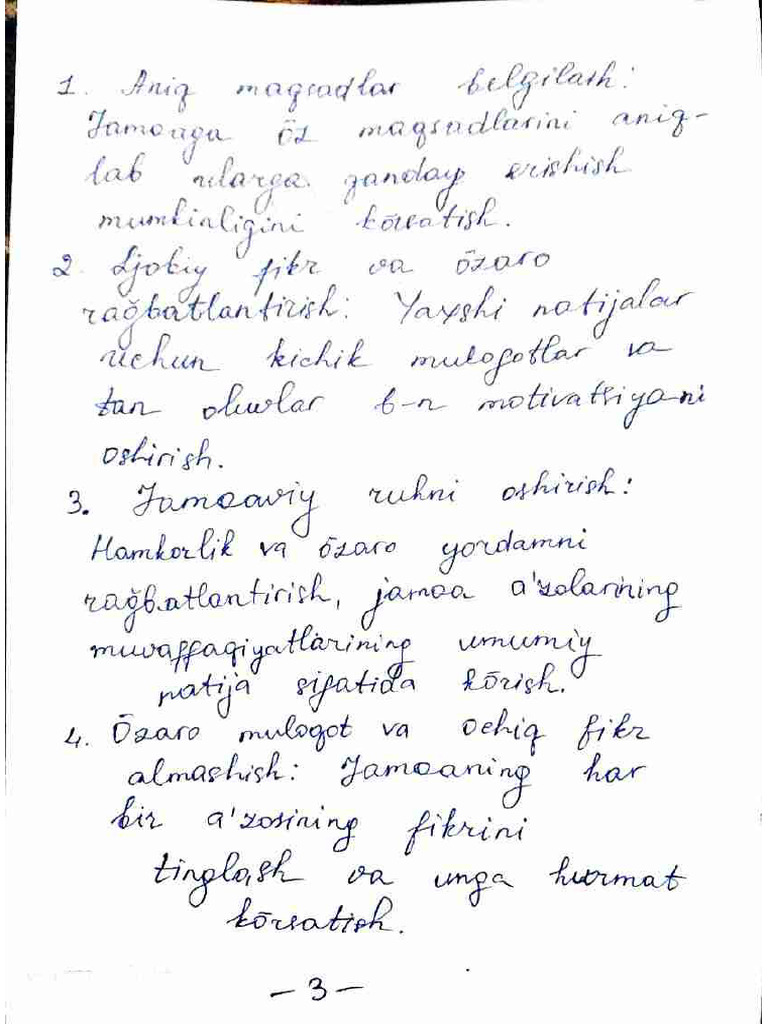 1. Aniq maqsadlar belgilash:
Jamoaga ōz maqsadlarini aniq-
lab ularga qanday erishish
mumkinligini kōrsatish.
2. Ijobiy fikr va ōzaro
rağbatlantirish: Yaxshi natijalar
uchun kichik mulogotlar va
tan oluvlar b-n motivatsiyani
oshirish.
3. Jamoaviy ruhni oshirish:
Hamkorlik va ōzaro yordamni
rağbatlantirish, jamoa a'zolarining
muvaffaqiyatlarining umumiy
natija sifatida kōrish.
4. Ōzaro muloqot va ochiq fikr
almashish: Jamoaning har
bir a'zosining fikrini
tinglash va unga hurmat
kōrsatish.
- 3 -